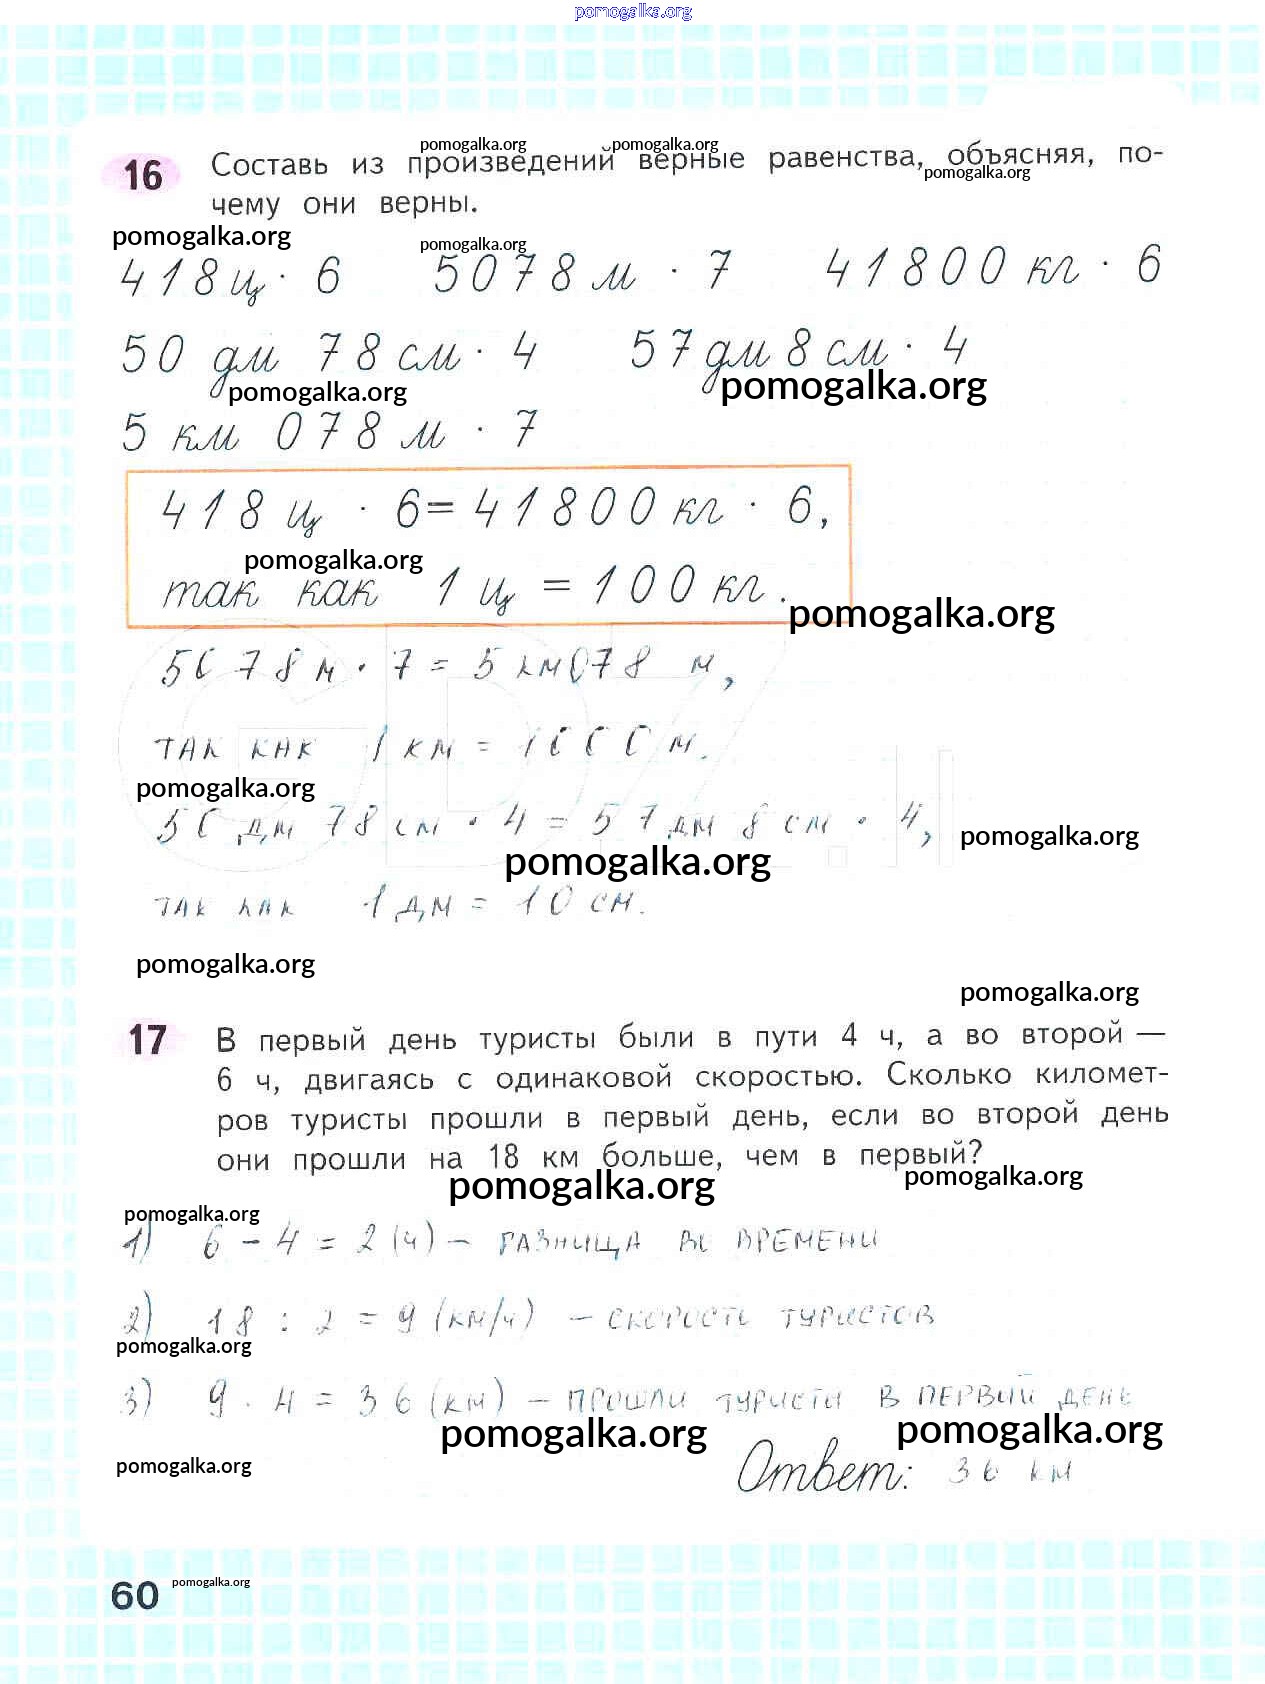 pomogalka.org
pomogalka.org pomogalka.org
16 Составь из произведений верные равенства, объясняя, по-
pomogalka.org
чему они верны.
pomogalka.org pomogalka.org
418 ц · 6 5078 м · 7 41800 кг · 6
50 дм 78 см · 4 57 дм 8 см · 4
pomogalka.org pomogalka.org
5 км 078 м · 7
418 ц · 6 = 41800 кг · 6,
pomogalka.org
так как 1 ц = 100 кг.
pomogalka.org
5078 м · 7 = 5 км 078 м,
так как 1 км = 1000 м.
pomogalka.org
50 дм 78 см · 4 = 57 дм 8 см · 4,
pomogalka.org
pomogalka.org
так как 1 дм = 10 см.
pomogalka.org
pomogalka.org
17 В первый день туристы были в пути 4 ч, а во второй —
6 ч, двигаясь с одинаковой скоростью. Сколько километ-
ров туристы прошли в первый день, если во второй день
они прошли на 18 км больше, чем в первый?
pomogalka.org pomogalka.org
pomogalka.org
1) 6 - 4 = 2 (ч) - разница во времени
2) 18 : 2 = 9 (км/ч) - скорость туристов
pomogalka.org
3) 9 · 4 = 36 (км) - прошли туристы в первый день
pomogalka.org pomogalka.org
pomogalka.org
Ответ: 36 км
60 pomogalka.org